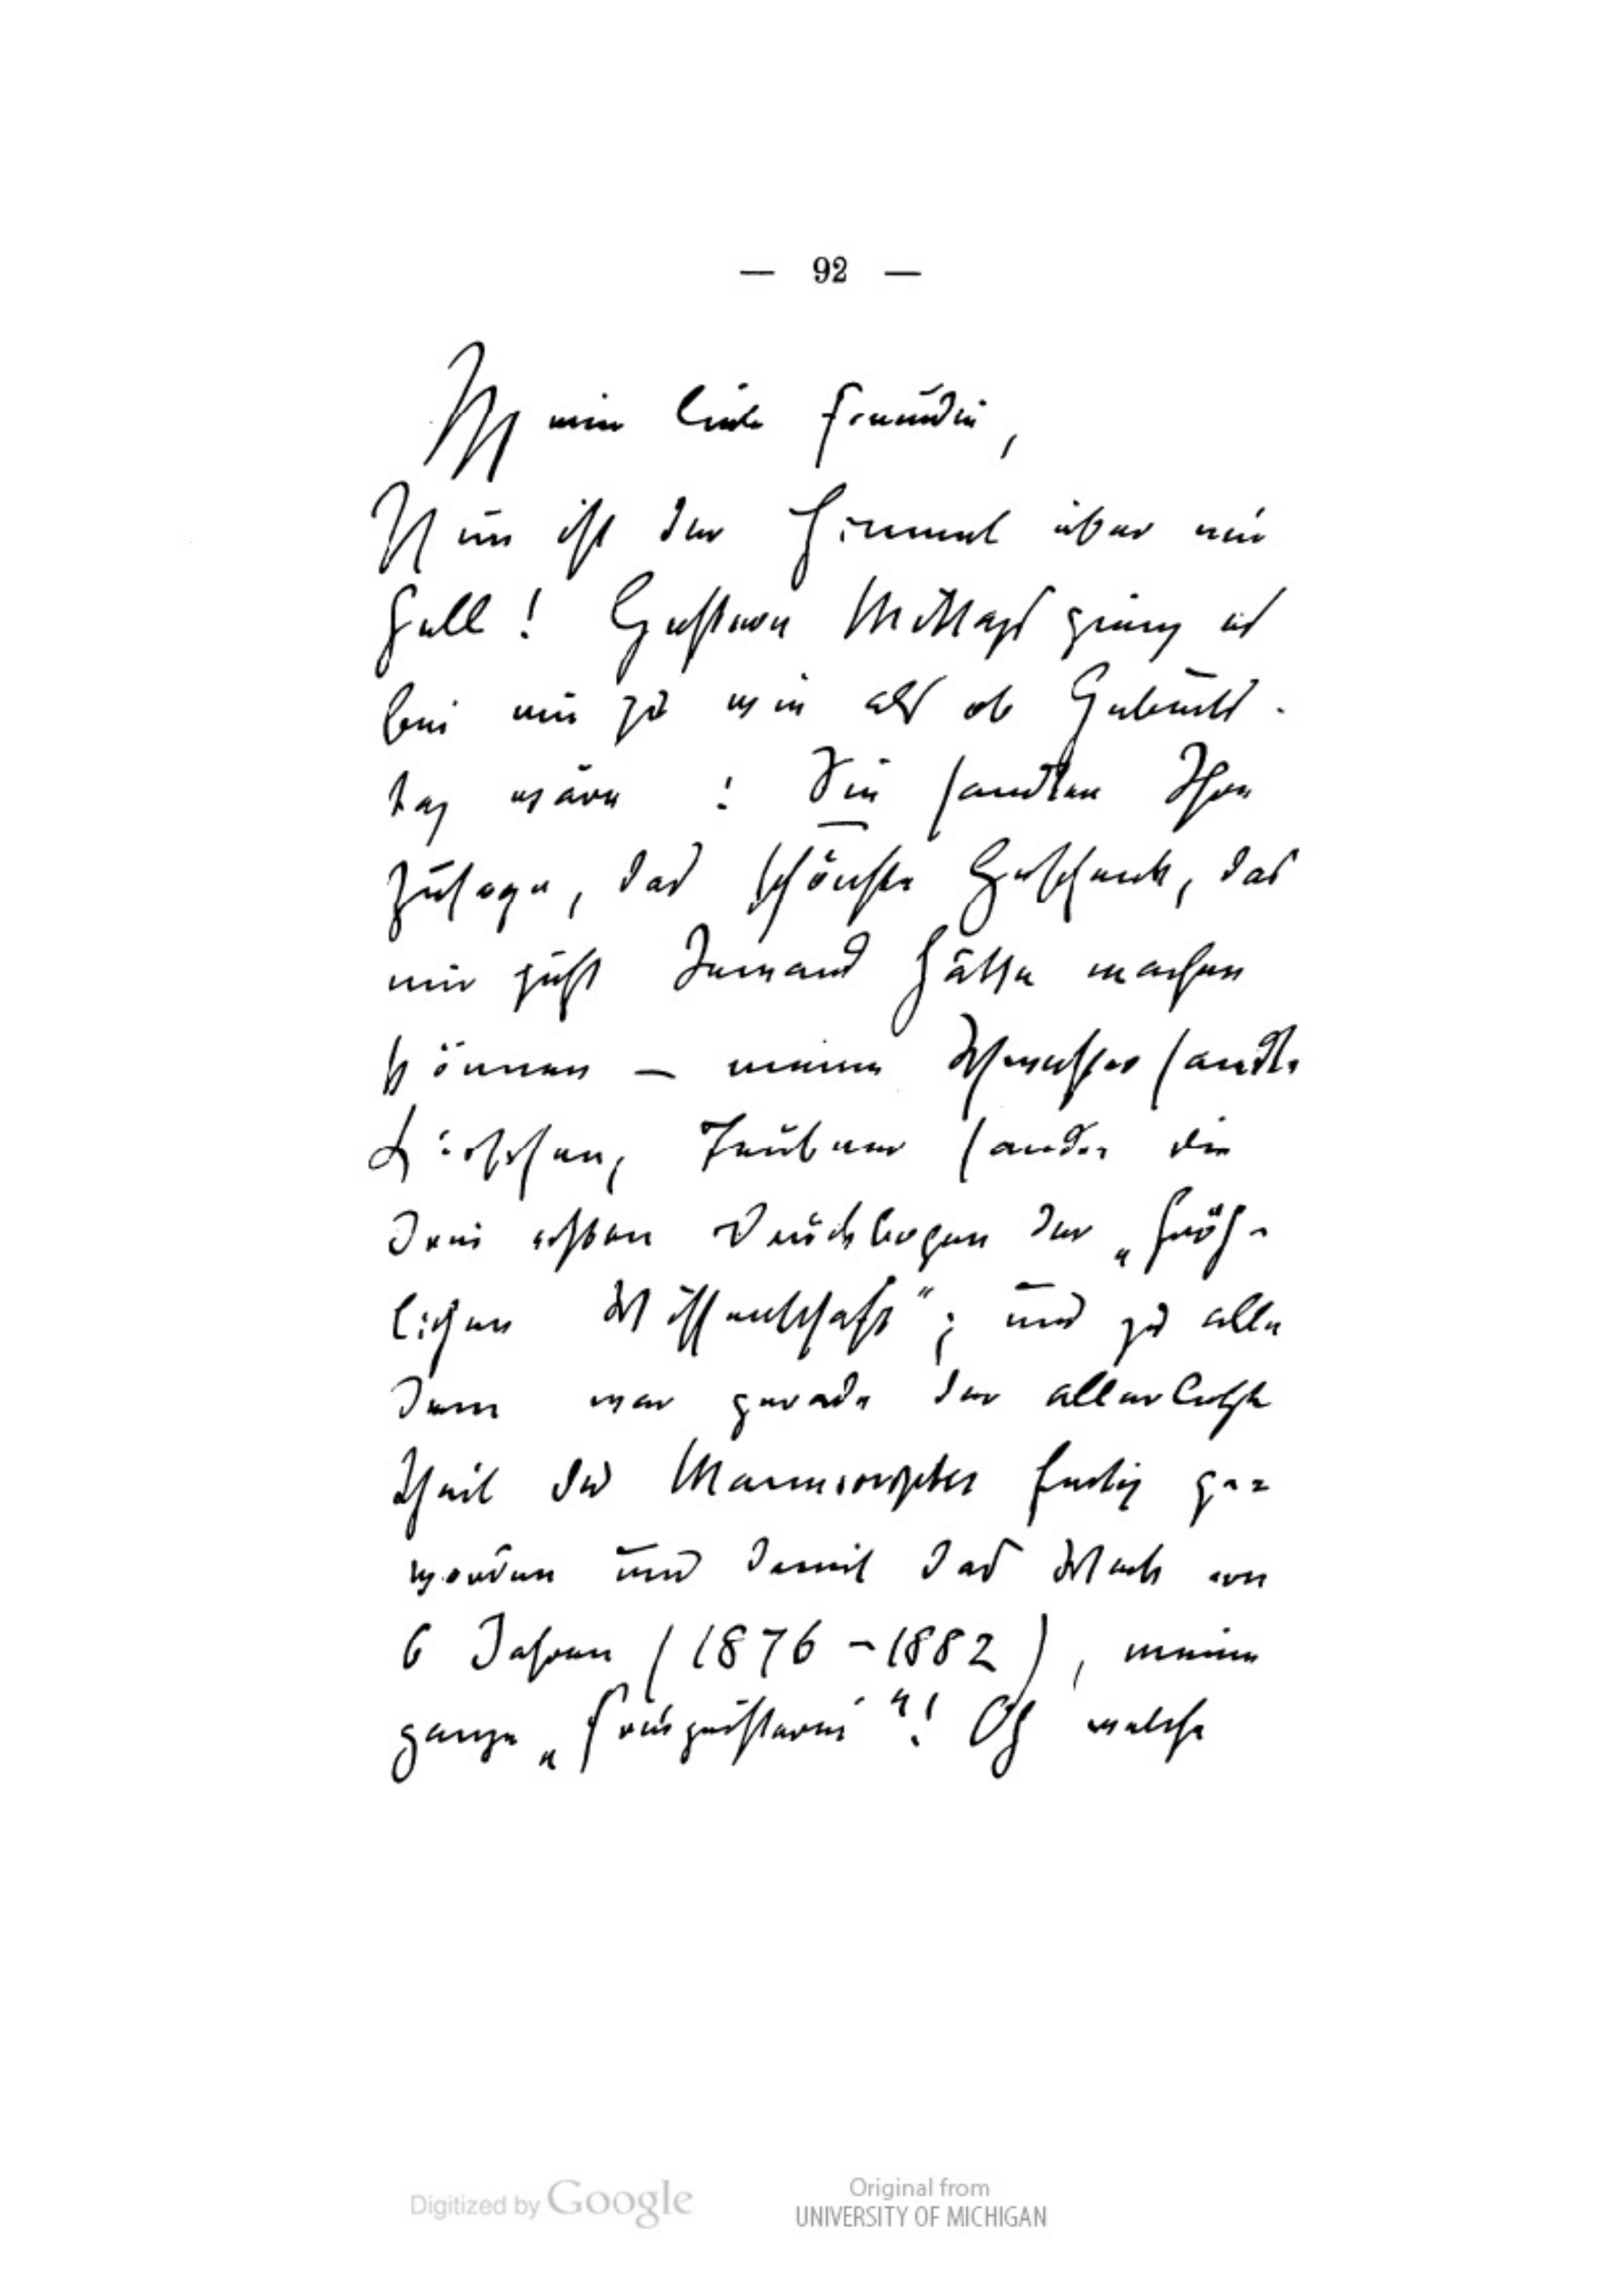 — 92 —
Meine liebe Freundin,
Nun ist der Himmel über mir
hell! Gestern Mittags gieng es
bei mir zu wie als ob Geburts-
tag wäre: Sie sandten Ihre
Zusage, das schönste Geschenk, das
mir jetzt Jemand hätte machen
können — meine Schwester sandte
Kirschen, Teubner sandte die
drei ersten Druckbogen der „fröh-
lichen Wissenschaft“; und zu alle
dem war gerade der allerletzte
Theil des Manuscriptes fertig ge-
worden und damit das Werk von
6 Jahren (1876-1882), meine
ganze „Freigeisterei“! Oh welche
Digitized by Google
Original from
UNIVERSITY OF MICHIGAN